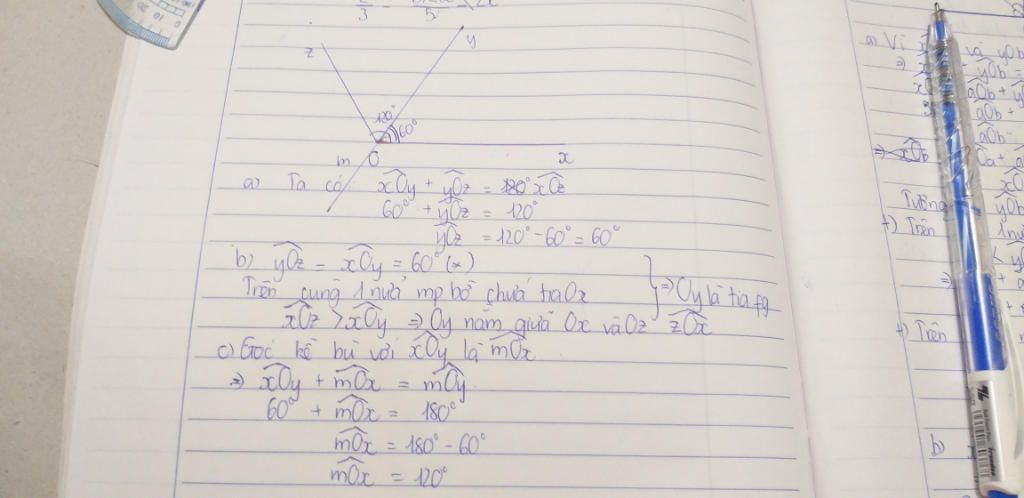 3
5
z
y
120°
60°
m O x
a) Ta có: xOy + yOz = 120° xOz
60° + yOz = 120°
yOz = 120° - 60° = 60°
b) yOz = xOy = 60° (*)
Trên cùng 1 nửa mp bờ chứa tia Ox
xOz > xOy => Oy nằm giữa Ox và Oz
=> Oy là tia pg
zOx
c) Góc kề bù với xOy là mOx
=> xOy + mOx = mOy
60° + mOx = 180°
mOx = 180° - 60°
mOx = 120°
a) Vì
và yOb
=> yOb =
aOb +
aOb +
aOb
=> xOb
Tương
yOb
+) Trên 1 nử
+) Trên
b)